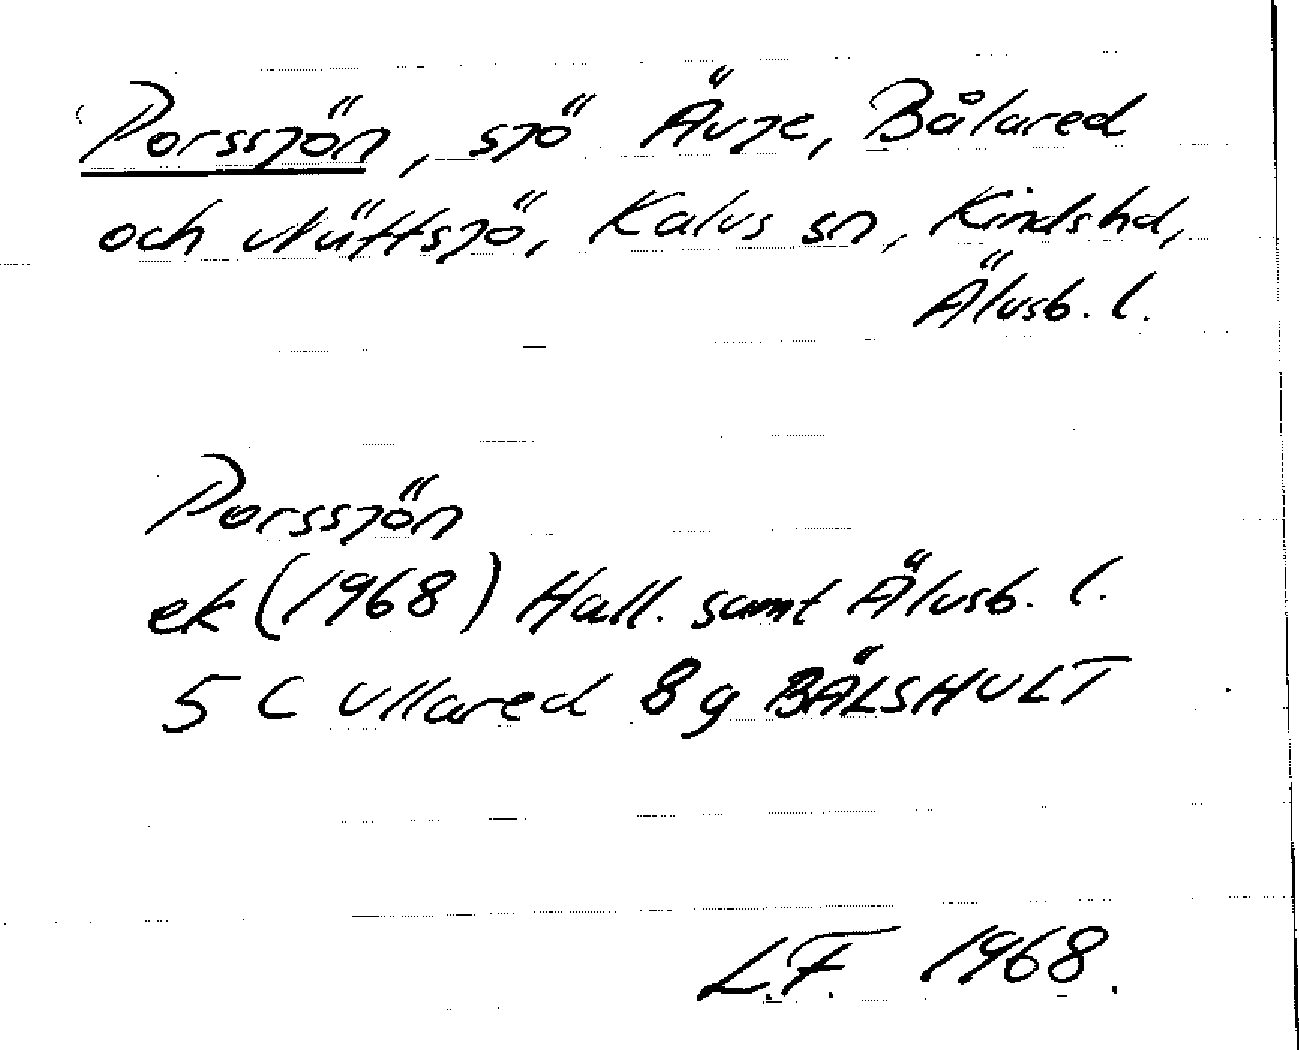 Porssjön, sjö Ävje, Bålared
och Nüttsjö, Kalvs sn, Kinds hd,
Älvsb. l.
Porssjön
ek (1968) Hall. samt Älvsb. l.
5 C Ullared 8 g BÄLSHULT
L.F. 1968.